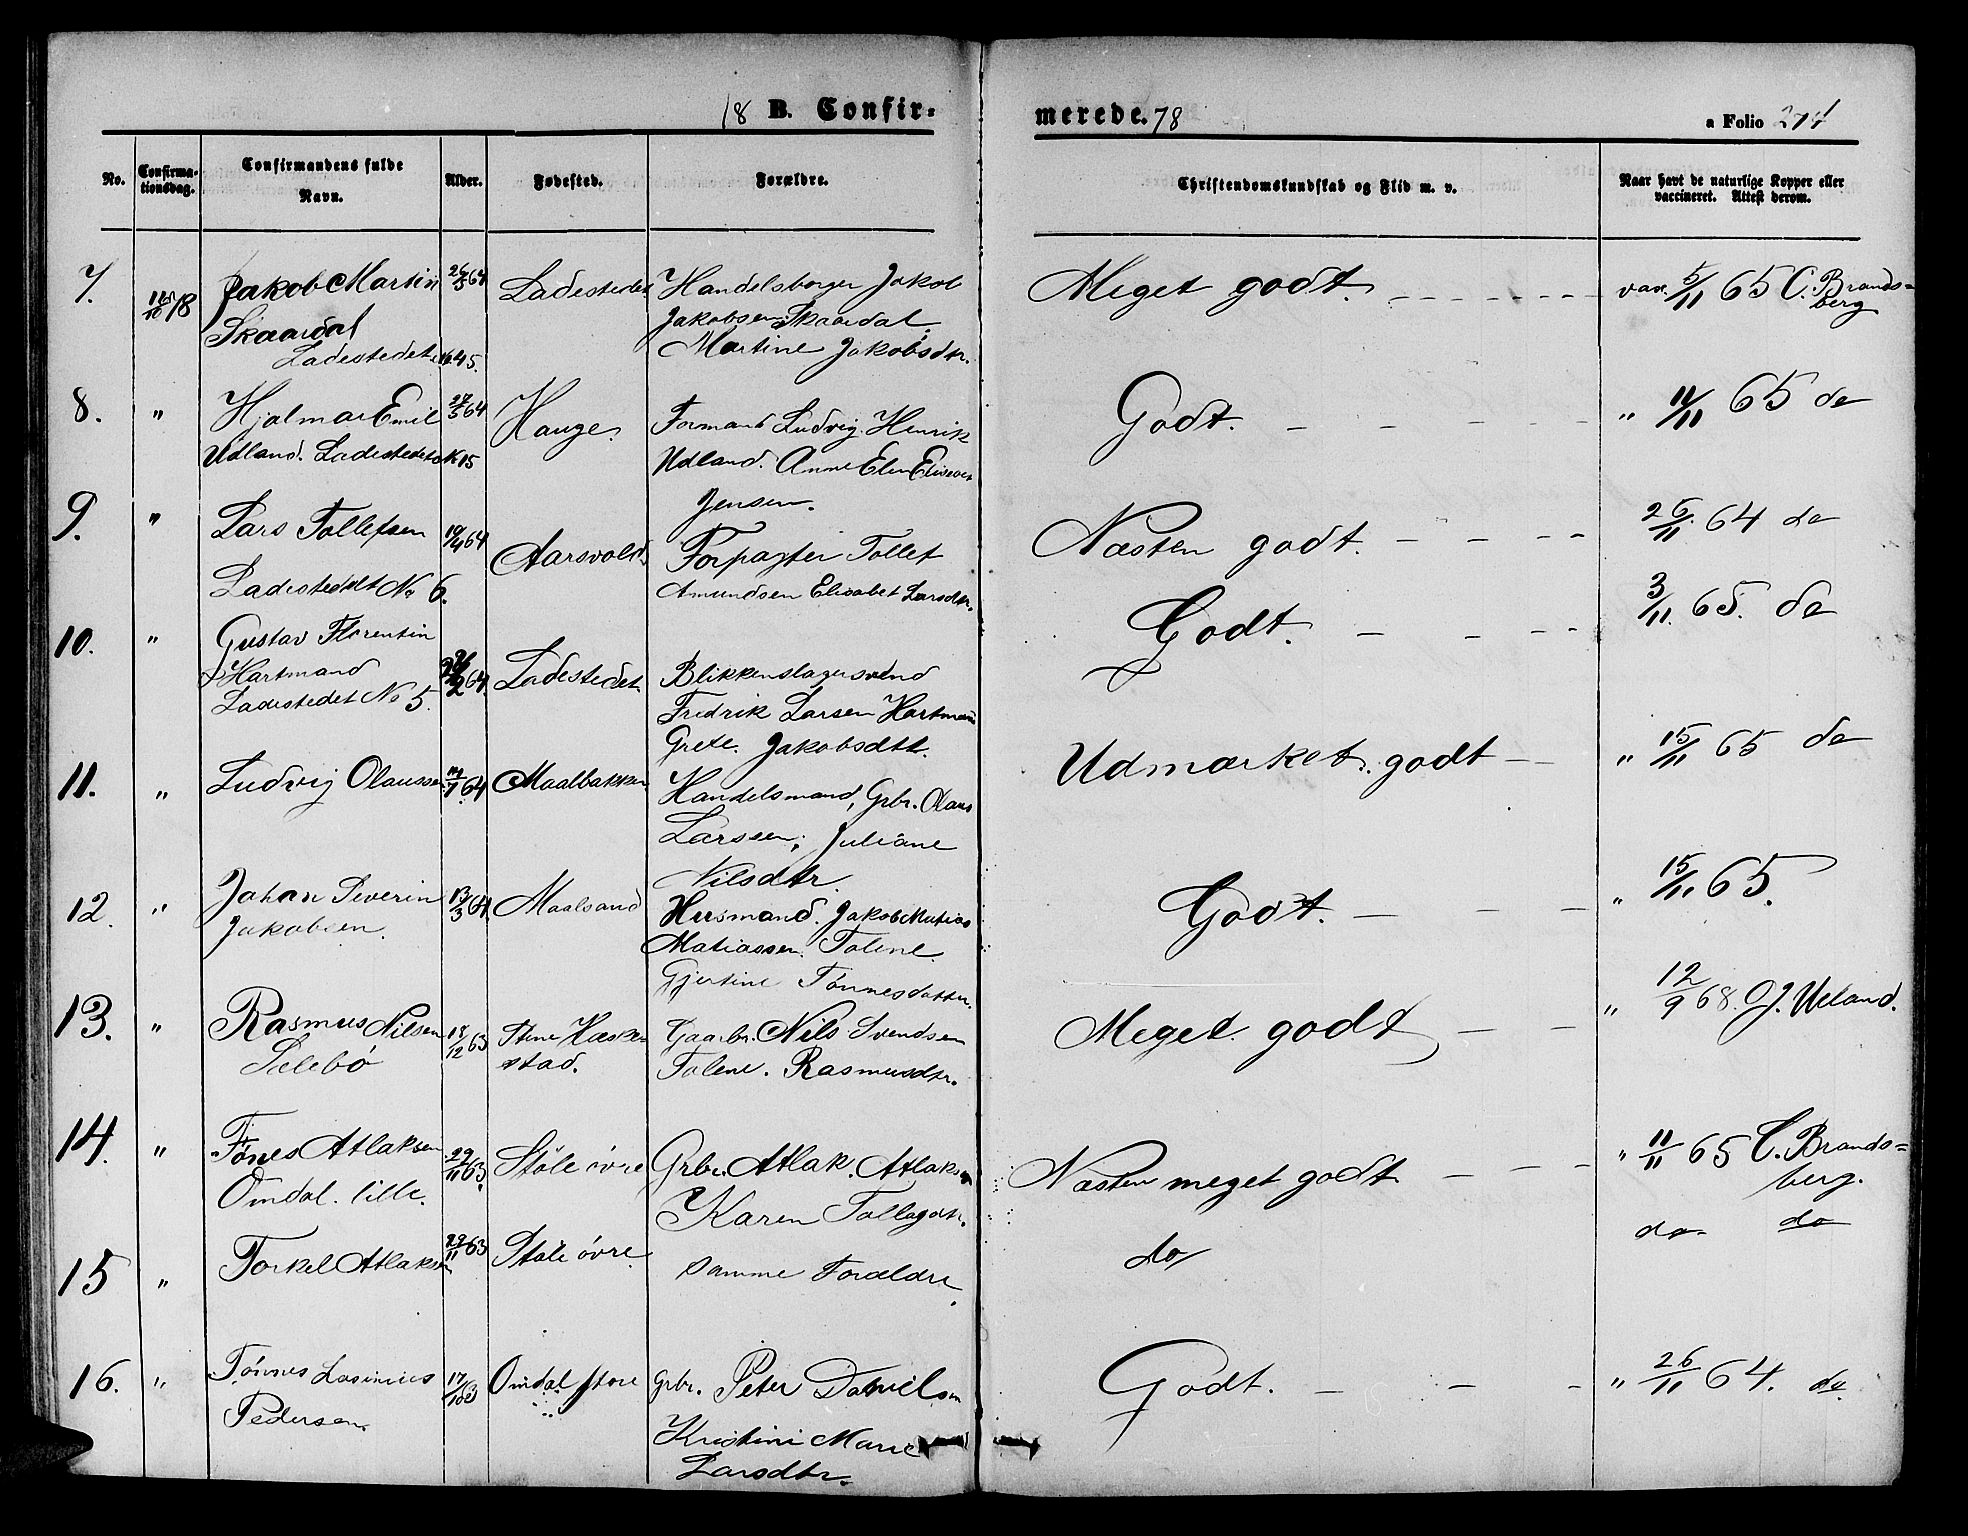 18 B. Confir- merede. 78 a Folio 274
No. Confirma-tionsdag. Confirmandens fulde Navn. Alder. Fødested. Forældre. Christendomskundskab og Flid m. v. Naar havt de naturlige Kopper eller vaccineret. Attest derom.
7. 78 Jakob Martin 64 Ladestedet Handelsborger Jakob Meget godt. vac. 5/11 65 C. Brands=
Skaardal Jakobsen Skaardal. berg
Ladestedet No 45. Martine Jakobsdtr.
8. " Hjalmar Emil 27/5 64 Hauge. Formand Ludvig Henrik Godt. " 11/11 65 do
Udland. Ladestedet No 15 Udland. Anne Elen Elisabet
Jensen.
9. " Lars Tollefsen 19/4 64 Aarsvold. Forpagter Tollef Næsten godt. 26/11 64 do
Ladestedet No 6. Amundsen Elisabet Larsdtr.
10. " Gustav Florentin Godt. 3/11 65. do
Hartmand 64 Ladestedet Blikkenslagersvend
Ladestedet No 5. Fredrik Larsen Hartman
Grete. Jakobsdtr.
11. " Ludvig Olaussen 64 Maalbakken Handelsmand, Grbr. Olaus Udmærket godt " 15/11 65 do
Larssen, Juliane
Nilsdtr.
12. " Johan Severin 13/3 64 Maalsand Husmand. Jakob Matias Godt. " 15/11 65.
Jakobsen. Matiassen. Tolene.
Gjertine Tønnesdatter.
13. " Rasmus Nilsen 18/12 63 Stene Hæske- Gaarbr. Nils Svendsen Meget godt " 12/9 68. J. Ueland.
Selebø stad. Tolene. Rasmusdtr.
14. " Tønes Atlaksen 29/11 63. Støle øvre Grbr. Atlak. Atlaksen Næsten meget godt " 11/11 65 C. Brands=
Omdal. lille. Karen Tollagdtr. berg.
15 " Torkel Atlaksen 29/11 63 Støle øvre. Samme Forældre. do do do
16. " Tønnes Lasinius 17/10 63 Omdal store Grbr. Peter Danielsen Godt. " 26/11 64. do.
Pedersen. Kristine Marie
Larsdtr.